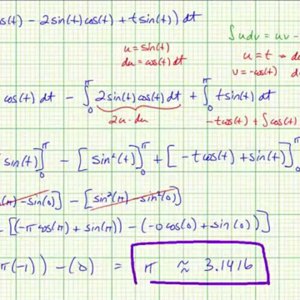 os(t) - 2sin(t)cos(t) + t sin(t)) dt
∫udv = uv -
u = sin(t)
du = cos(t)dt
u = t → d
v = -cos(t)
cos(t) dt - ∫₀^π 2sin(t)cos(t) dt + ∫₀^π t sin(t) dt
2u·du
-tcos(t) + ∫cos(t)
sin(t)]₀^π - [sin²(t)]₀^π + [-tcos(t) + sin(t)]₀^π
(π) - sin(0)] - [sin²(π) - sin²(0)]
[(-π cos(π) + sin(π)) - (-0cos(0) + sin(0))]
π(-1)) - (0) = π ≈ 3.1416